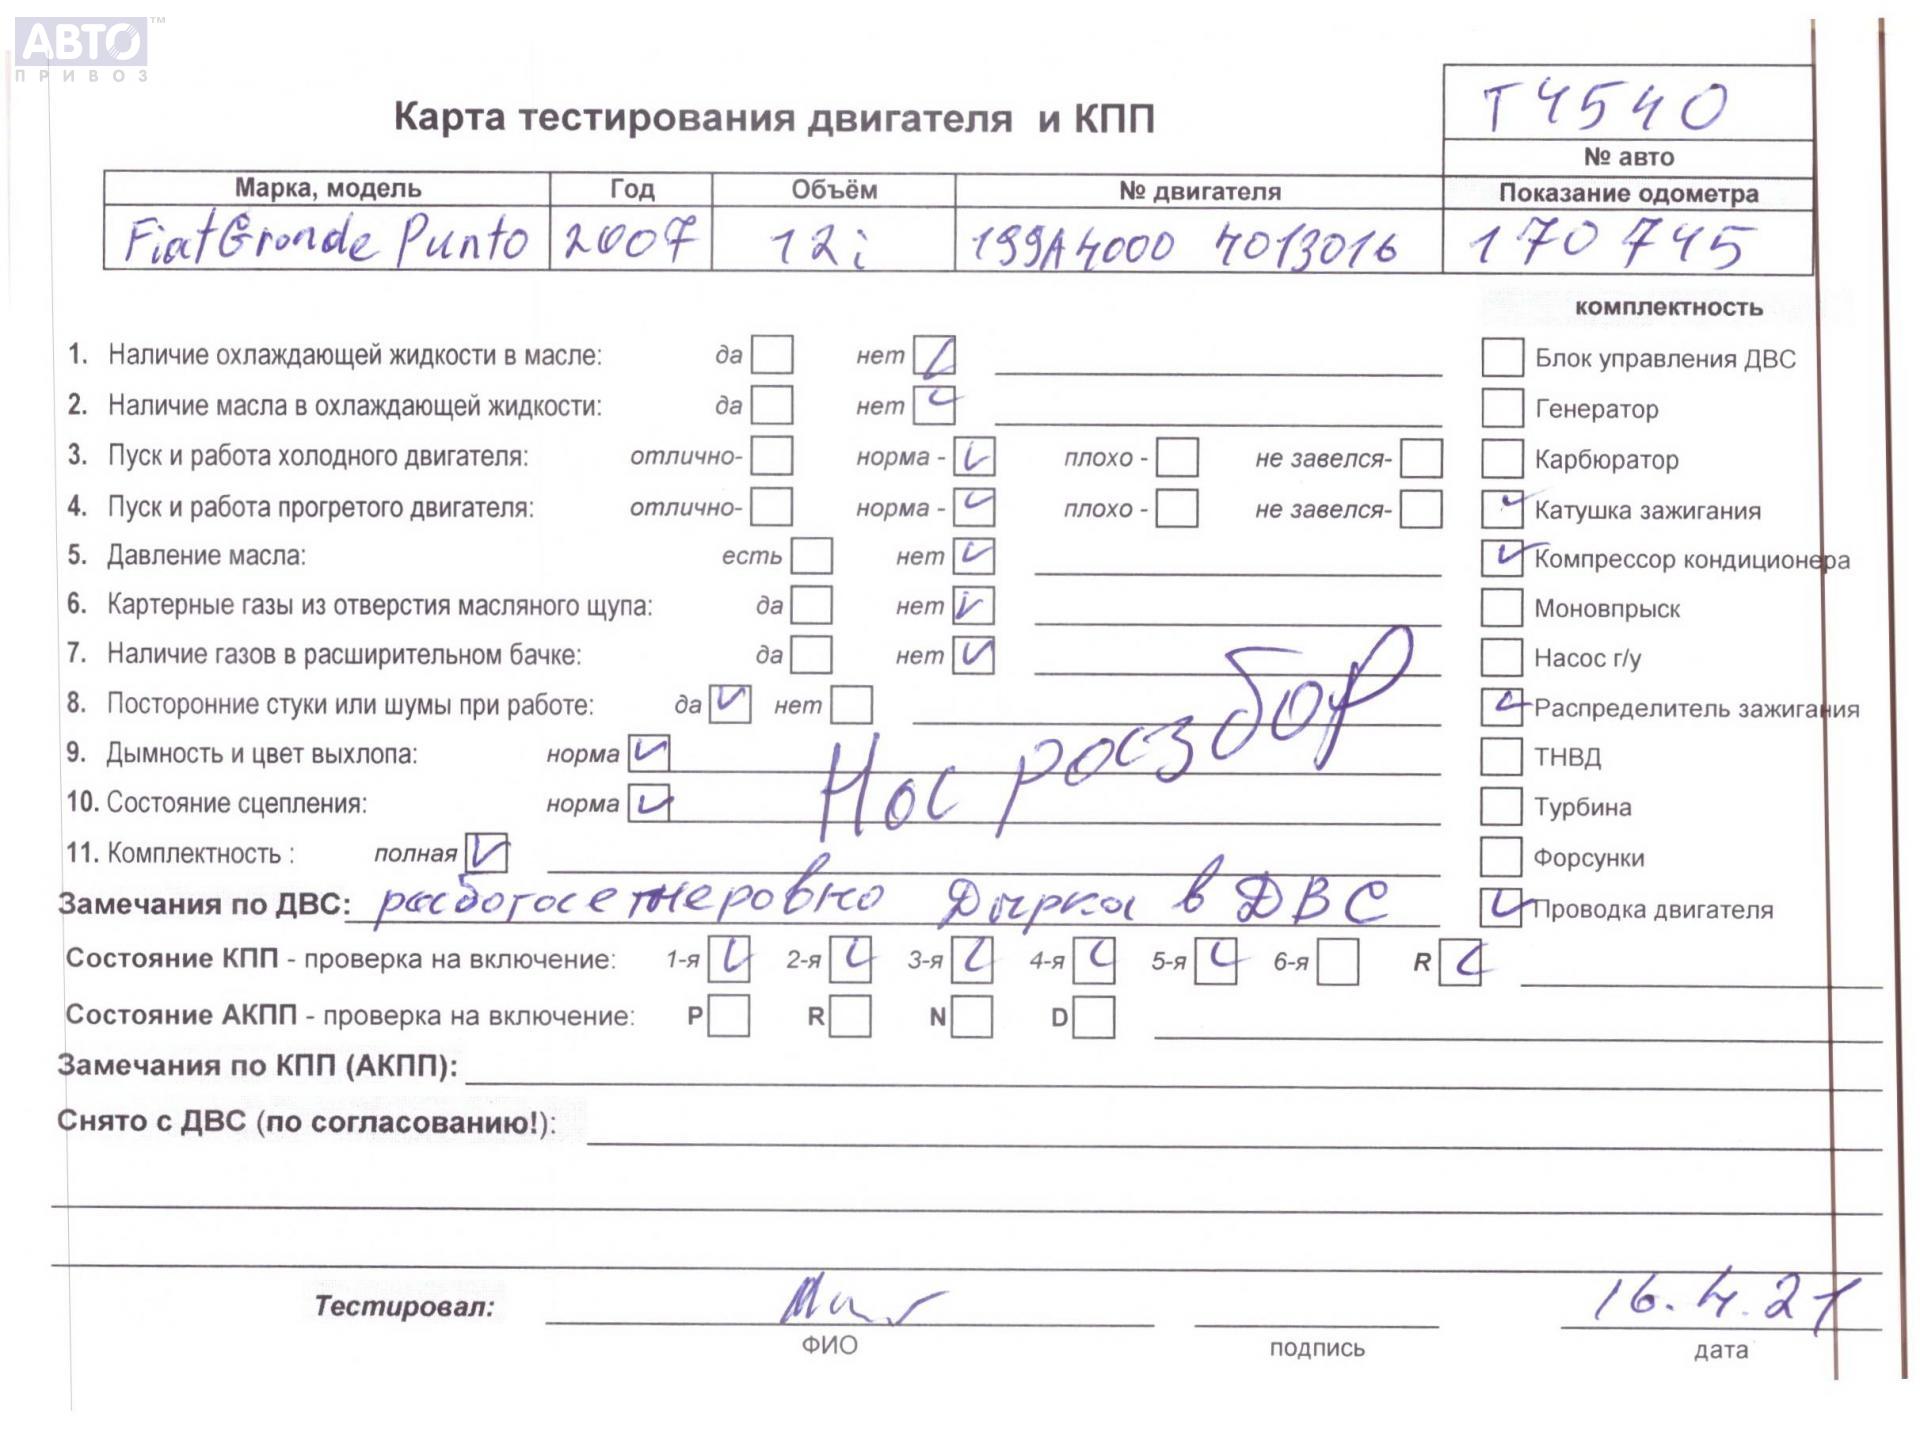 АВТО™
ПРИВОЗ
Карта тестирования двигателя и КПП
Т4540
№ авто
Марка, модель Год Объём № двигателя Показание одометра
Fiat Gronde Punto 2007 12i 199A4000 4013016 170 745
комплектность
1. Наличие охлаждающей жидкости в масле: да нет Блок управления ДВС
2. Наличие масла в охлаждающей жидкости: да нет Генератор
3. Пуск и работа холодного двигателя: отлично- норма - плохо - не завелся- Карбюратор
4. Пуск и работа прогретого двигателя: отлично- норма - плохо - не завелся- Катушка зажигания
5. Давление масла: есть нет Компрессор кондиционера
6. Картерные газы из отверстия масляного щупа: да нет Моновпрыск
7. Наличие газов в расширительном бачке: да нет Насос г/у
8. Посторонние стуки или шумы при работе: да нет Распределитель зажигания
9. Дымность и цвет выхлопа: норма ТНВД
На розбор
10. Состояние сцепления: норма Турбина
11. Комплектность : полная Форсунки
Замечания по ДВС: работае неровно Дырка в ДВС Проводка двигателя
Состояние КПП - проверка на включение: 1-я 2-я 3-я 4-я 5-я 6-я R
Состояние АКПП - проверка на включение: P R N D
Замечания по КПП (АКПП):
Снято с ДВС (по согласованию!):
Тестировал: 16.4.21
ФИО подпись дата